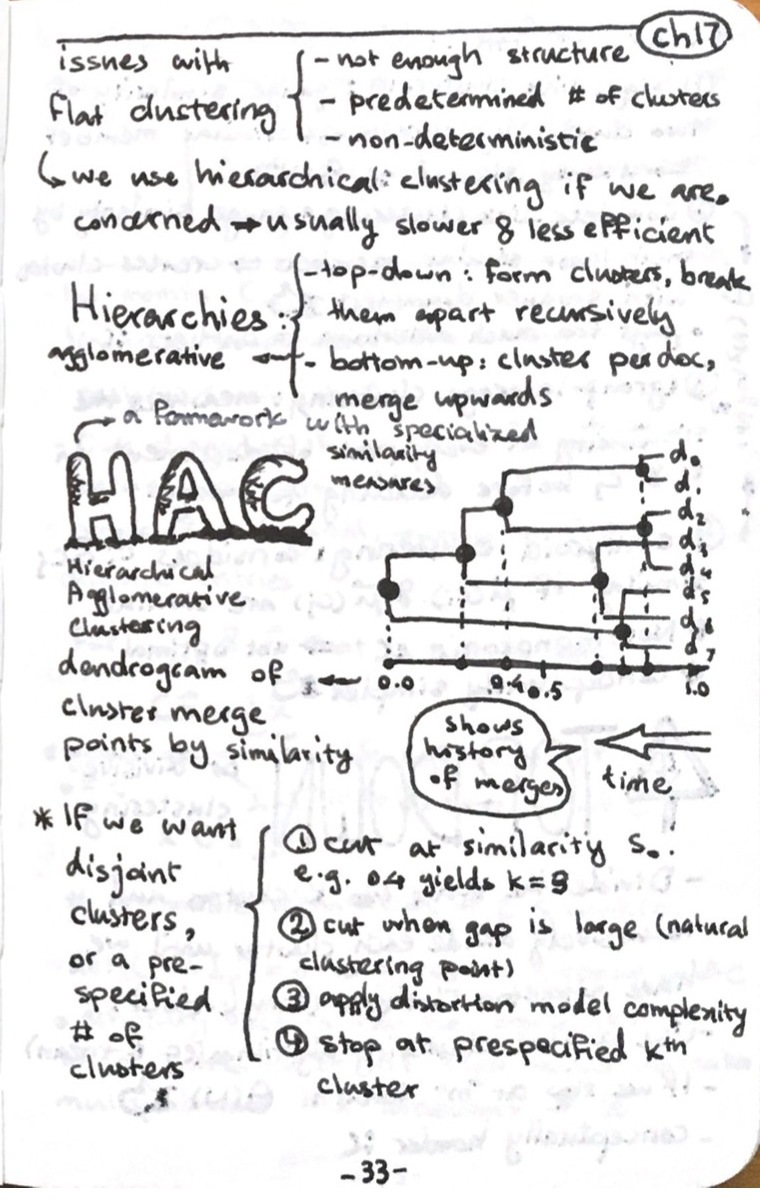 ch17
issues with
flat clustering
- not enough structure
- predetermined # of clusters
- non-deterministic
we use hierarchical clustering if we are
concerned → usually slower & less efficient
Hierarchies:
- top-down: form clusters, break
them apart recursively
agglomerative ←
- bottom-up: cluster per doc,
merge upwards
→ a framework with specialized
similarity
measures
HAC
Hierarchical
Agglomerative
Clustering
d0
d1
d2
d3
d4
d5
d6
d7
0.0 0.4 0.5 1.0
dendrogram of ←
cluster merge
points by similarity
shows
history
of merges
time
* If we want
disjoint
clusters,
or a pre-
specified
# of
clusters
① cut at similarity S.
e.g. 0.4 yields k=3
② cut when gap is large (natural
clustering point)
③ apply distortion model complexity
④ stop at prespecified kth
cluster
-33-